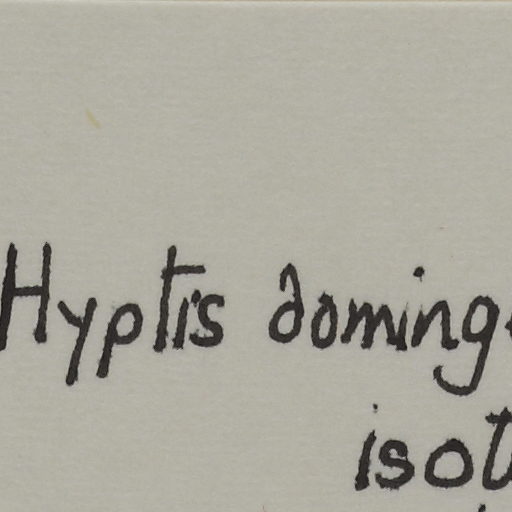 Hyptis doming
isot